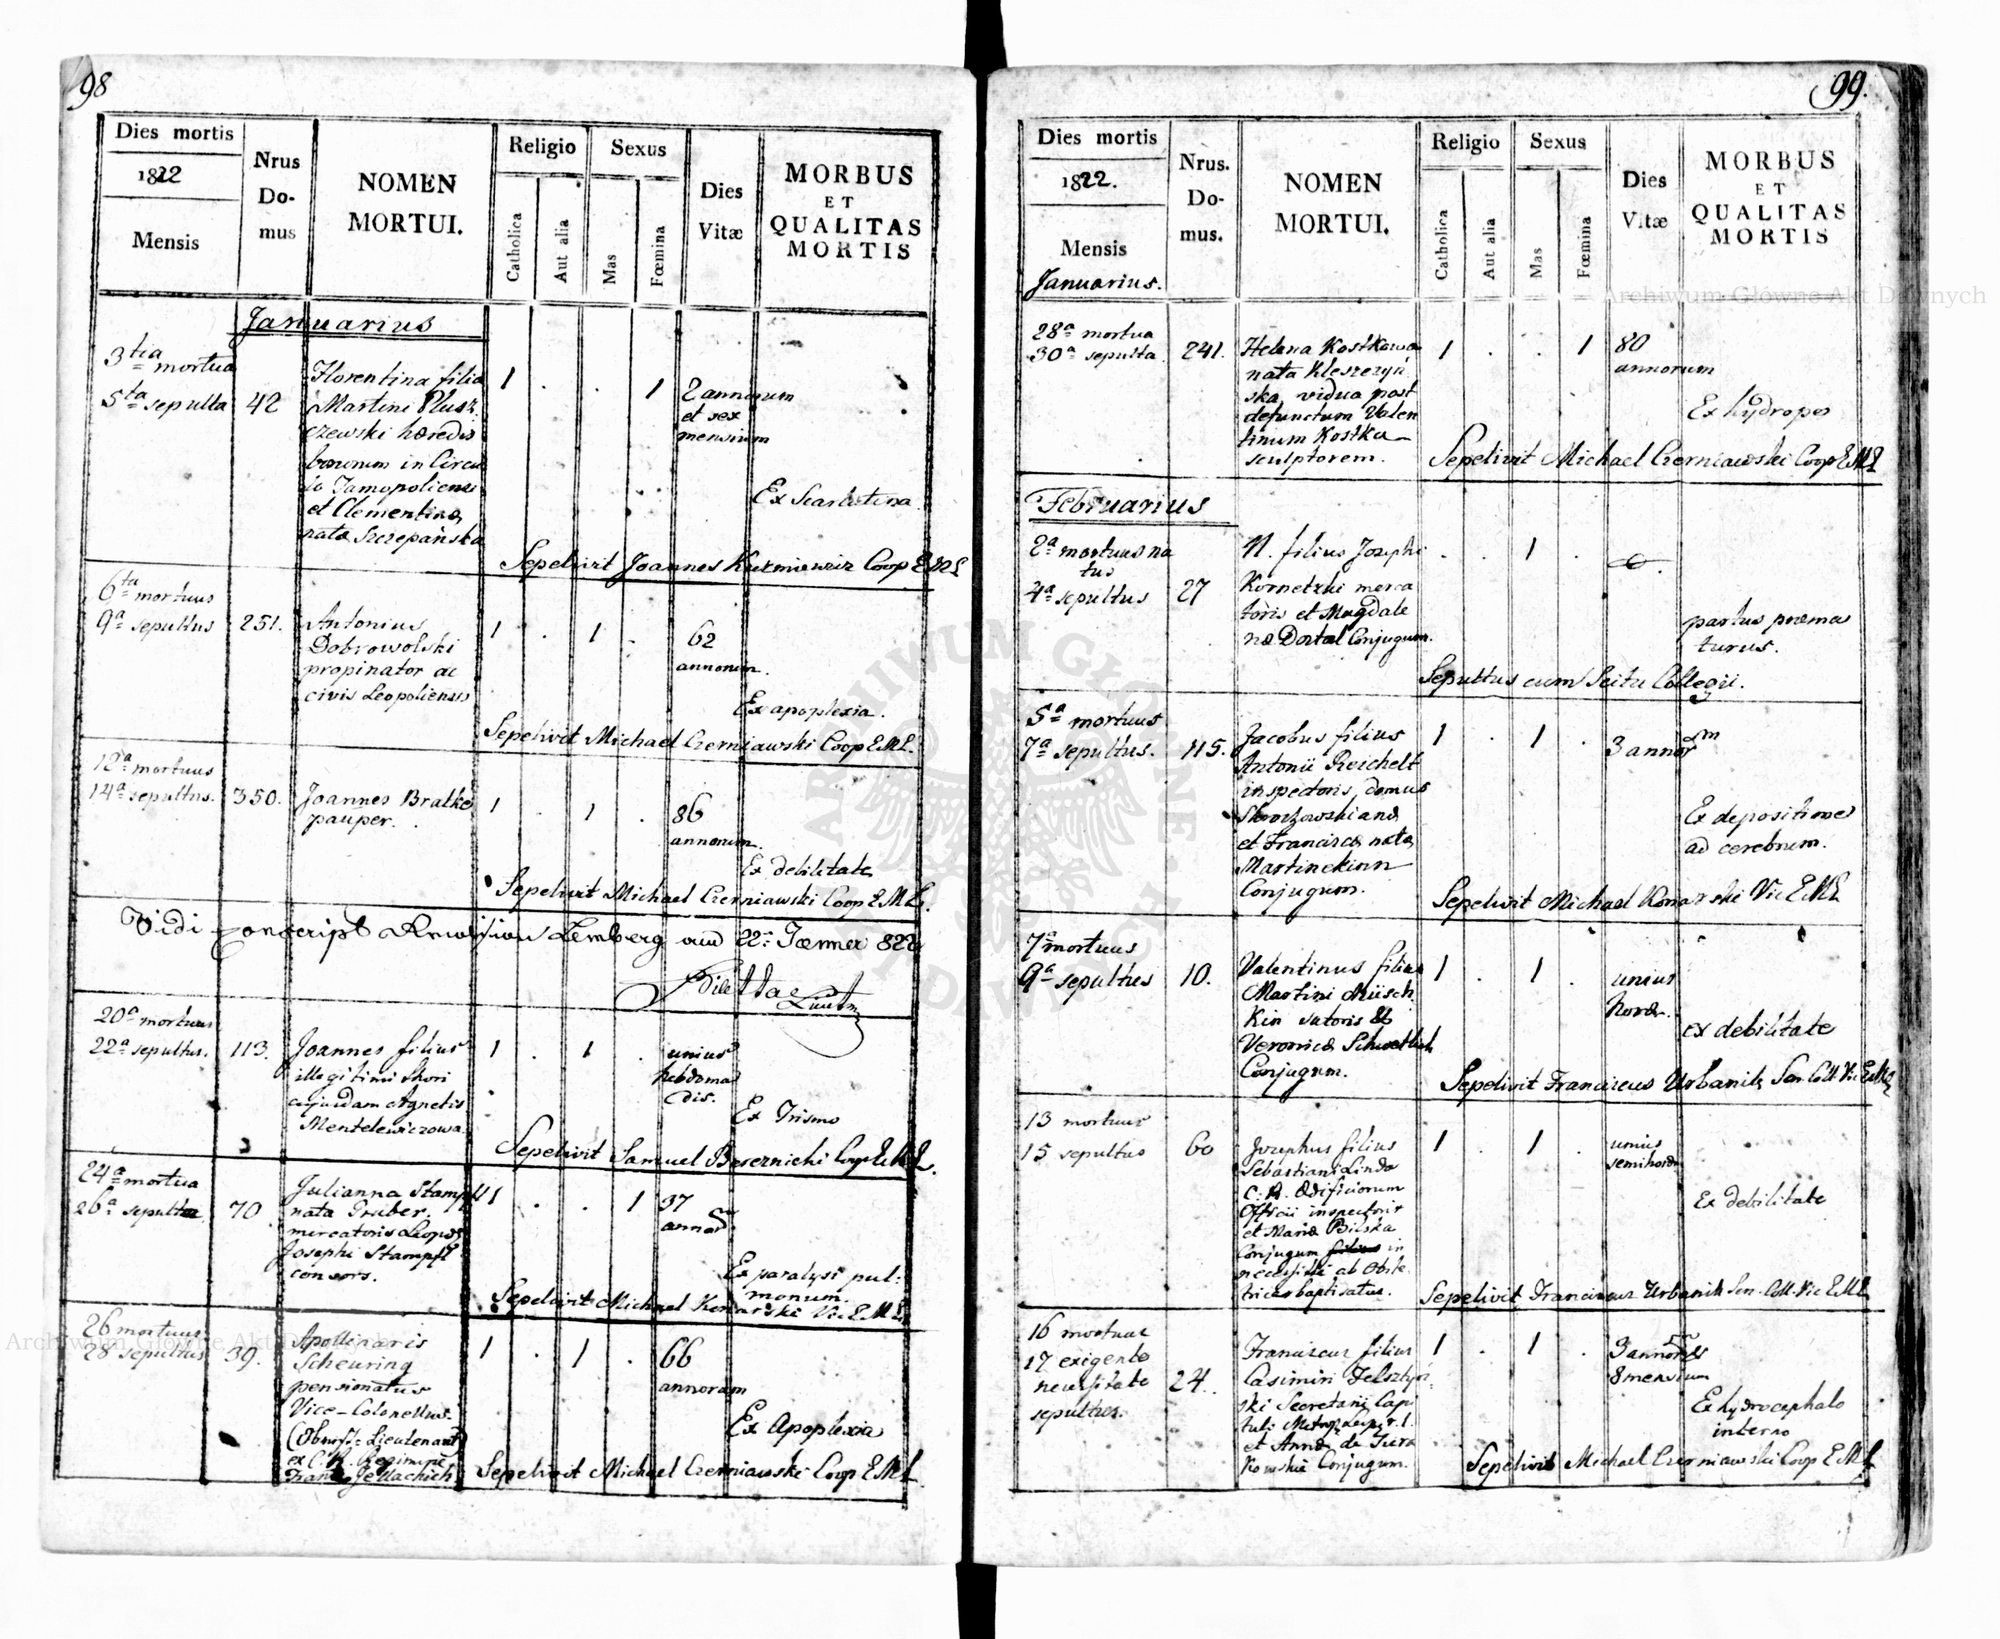 98
Dies mortis
1822
Mensis
Nrus
Do-
mus
NOMEN
MORTUI.
Religio
Catholica
Aut alia
Sexus
Mas
Fœmina
Dies
Vitæ
MORBUS
ET
QUALITAS
MORTIS
Januarius
3tia mortua
5ta sepulta
42
Florentina filia
Martini Plusz
czewski hæredis
bonorum in Circu
lo Tarnopoliensi
et Clementinæ
nata Szczepańska
1 . . 1
2 annorum
et sex
mensium
Ex Scarlatina
Sepelivit Joannes Kuzmiewicz Coop E.M.L.
6ta mortuus
9a sepultus
251.
Antonius
Dobrowolski
propinator ac
civis Leopoliensis
1 . 1 .
62
annorum.
Ex apoplexia.
Sepelivit Michael Czerniawski Coop E.M.L.
12a mortuus
14a sepultus.
350.
Joannes Bratke
pauper.
1 . 1 .
86
annorum.
Ex debilitate
Sepelivit Michael Czerniawski Coop E.M.L.
Vidi Lemberg 22 Jænner 822
20a mortuus
22a sepultus.
113.
Joannes filius
illegitimi thori
cujusdam Agnetis
Mentelewiczowa
1 . 1 .
unius
hebdoma
dis.
Ex Trismo
Sepelivit Samuel Coop E.M.L.
24a mortua
26a sepulta
70
Julianna Stampfl
nata Gruber.
mercatoris Leopol
Josephi Stampfl
consors.
1 . . 1
37
annor
Ex paralysi pul-
monum.
Sepelivit Michael Konarski Vic E.M.L.
26 mortuus
28 sepultus
39.
Apollinaris
Scheuring
pensionatus
Vice-Colonellus
(Obrist-Lieutenant)
ex C. R. Regimine
Franc Jellachich
1 . 1 .
66
annorum
Ex Apoplexia
Sepelivit Michael Czerniawski Coop E.M.L.
99.
Dies mortis
1822.
Mensis
Januarius.
Nrus.
Do-
mus.
NOMEN
MORTUI.
Religio
Catholica
Aut alia
Sexus
Mas
Fœmina
Dies
Vitæ
MORBUS
ET
QUALITAS
MORTIS
28a mortua
30a sepulta.
241.
Helena Kostkowa
nata Kleszczyń
ska, vidua post
defunctum Valen
tinum Kostka
sculptorem.
1 . . 1
80
annorum
Ex hydrope
Sepelivit Michael Czerniawski Coop E.M.L
Februarius
2a mortuus na
tus
4a sepultus
27
N. filius Josephi
Kornetzki merca
toris et Magdale
næ Dostal Conjugum.
. . 1 .
partus præma
turus.
Sepultus cum Scitu Collegii.
5a mortuus
7a sepultus.
115.
Jacobus filius
Antonii Reichelt
inspectoris domus
Skorzowskianæ
et Franciscæ nata
Martinekinn
Conjugum.
1 . 1 .
3 annorm
Ex depositione
ad cerebrum.
Sepelivit Michael Konarski Vic E.M.L
7a mortuus
9a sepultus
10.
Valentinus filius
Martini Müsch
kin sutoris &
Veronicæ
Conjugum.
1 . 1 .
unius
horæ.
ex debilitate
Sepelivit Franciscus Urbanik Sen Coll Vic E.M.L
13 mortuus
15 sepultus
60
Josephus filius
Sebastiani Linda
C. R. Ædificiorum
Officii inspectoris
et Mariæ Bilska
Conjugum filius in
necessitate ab Obste
trice baptisatus.
1 . 1 .
unius
semihoræ
Ex debilitate
Sepelivit Franciscus Urbanik Sen. Coll. Vic E.M.L
16 mortuus
17 exigente
necessitate
sepultus.
24.
Franciscus filius
Casimiri Felsztyń
ski Secretarii Capi
tuli Metrop Leop r. l.
et Annæ de Tura
Kowskie Conjugum.
1 . 1 .
3 annor
8 mensium
Ex hydrocephalo
interno
Sepelivit Michael Czerniawski Coop E.M.L
Archiwum Główne Akt Dawnych
Archiwum Główne Akt Dawnych
ARCHIWUM GŁÓWNE AKT DAWNYCH